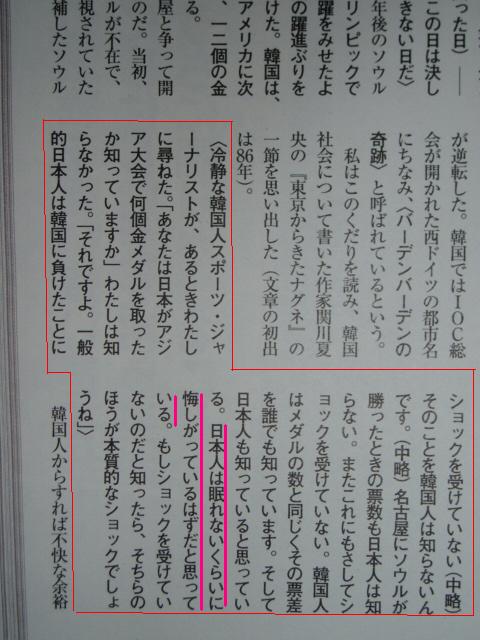 った日〉――
この日は決し
きない日だ〉
年後のソウル
リンピックで
躍をみせたよ
の躍進ぶりを
けた。韓国は、
アメリカに次
、一二個の金
る。
屋と争って開
のだ。当初、
ルが不在で、
視されていた
補したソウル
が逆転した。韓国ではＩＯＣ総
会が開かれた西ドイツの都市名
にちなみ、〈バーデンバーデンの
奇跡〉と呼ばれているという。
私はこのくだりを読み、韓国
社会について書いた作家関川夏
央の『東京からきたナグネ』の
一節を思い出した（文章の初出
は86年）。
〈冷静な韓国人スポーツ・ジャ
ーナリストが、あるときわたし
に尋ねた。「あなたは日本がアジ
ア大会で何個金メダルを取った
か知っていますか」わたしは知
らなかった。「それですよ。一般
的日本人は韓国に負けたことに
ショックを受けていない（中略）
そのことを韓国人は知らないん
です。（中略）名古屋にソウルが
勝ったときの票数も日本人は知
らない。またこれにもさしてシ
ョックを受けていない。韓国人
はメダルの数と同じくその票差
を誰でも知っています。そして
日本人も知っていると思ってい
る。日本人は眠れないくらいに
悔しがっているはずだと思って
いる。もしショックを受けてい
ないのだと知ったら、そちらの
ほうが本質的なショックでしょ
うね」〉
韓国人からすれば不快な余裕